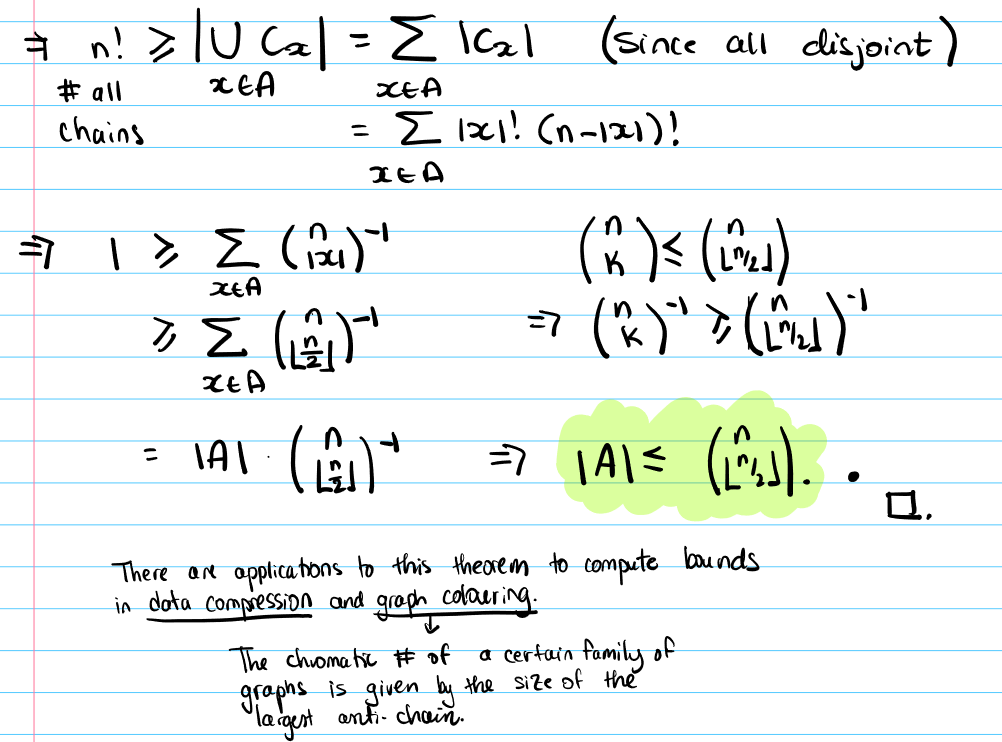 ⇒ n! ≥ |∪ Cx| = ∑ |Cx| (since all disjoint)
# all x∈A x∈A
chains = ∑ |x|! (n-|x|)!
x∈A
⇒ 1 ≥ ∑ (n |x|)^-1 (n k) ≤ (n ⌊n/2⌋)
x∈A
≥ ∑ (n ⌊n/2⌋)^-1 ⇒ (n k)^-1 ≥ (n ⌊n/2⌋)^-1
x∈A
= |A| · (n ⌊n/2⌋)^-1 ⇒ |A| ≤ (n ⌊n/2⌋). •
□.
There are applications to this theorem to compute bounds
in data compression and graph colouring.
↓
The chromatic # of a certain family of
graphs is given by the size of the
largest anti-chain.